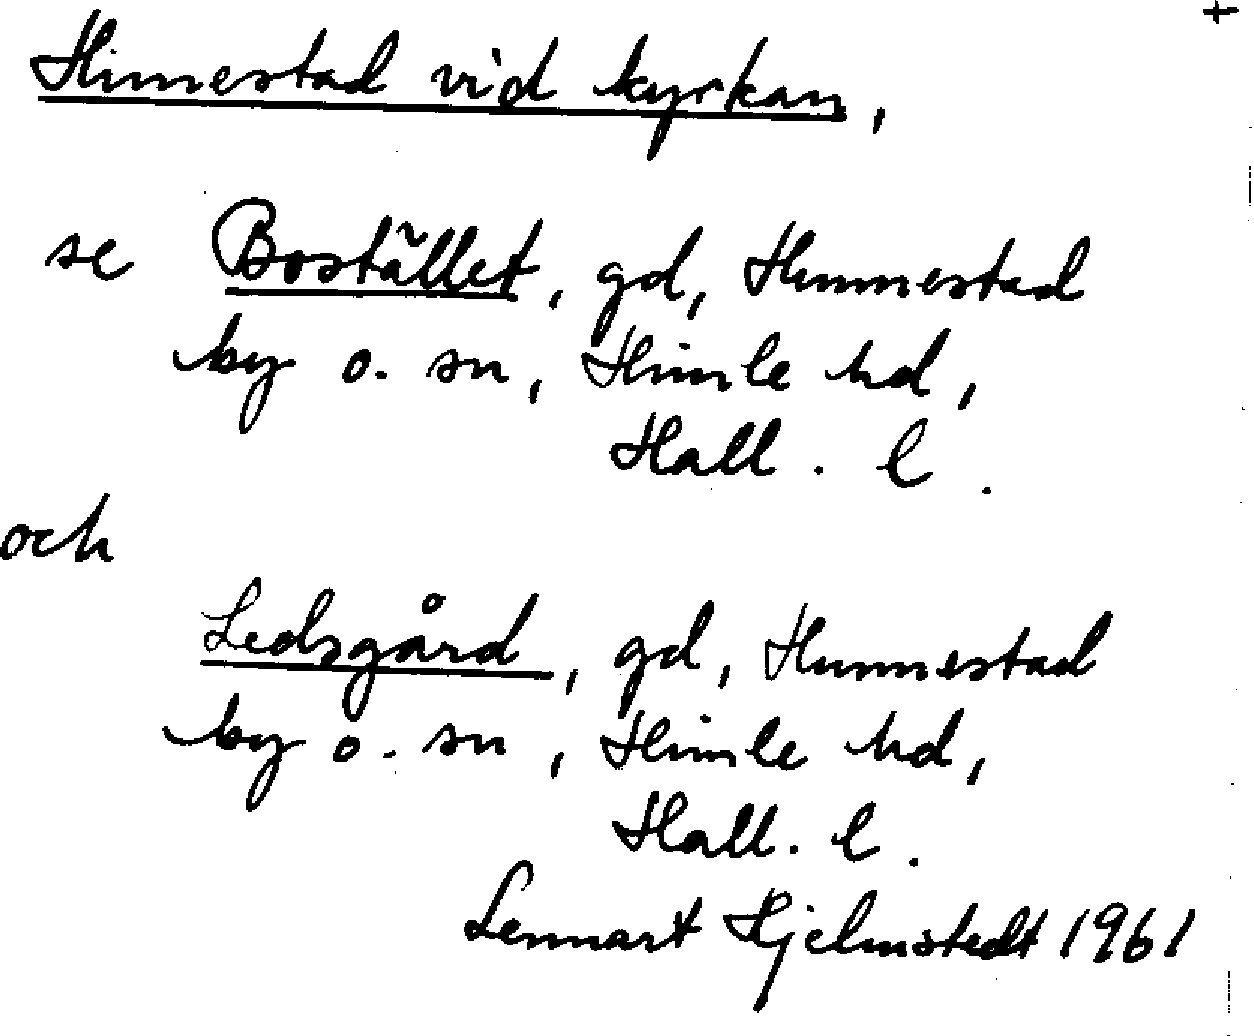 +
Himestad vid kyrkan,
se Bostället, gd, Hunnestad
by o. sn, Himle hd,
Hall. l.
och
Ledsgård, gd, Hunnestad
by o. sn, Himle hd,
Hall. l.
Lennart Hjelmstedt 1961